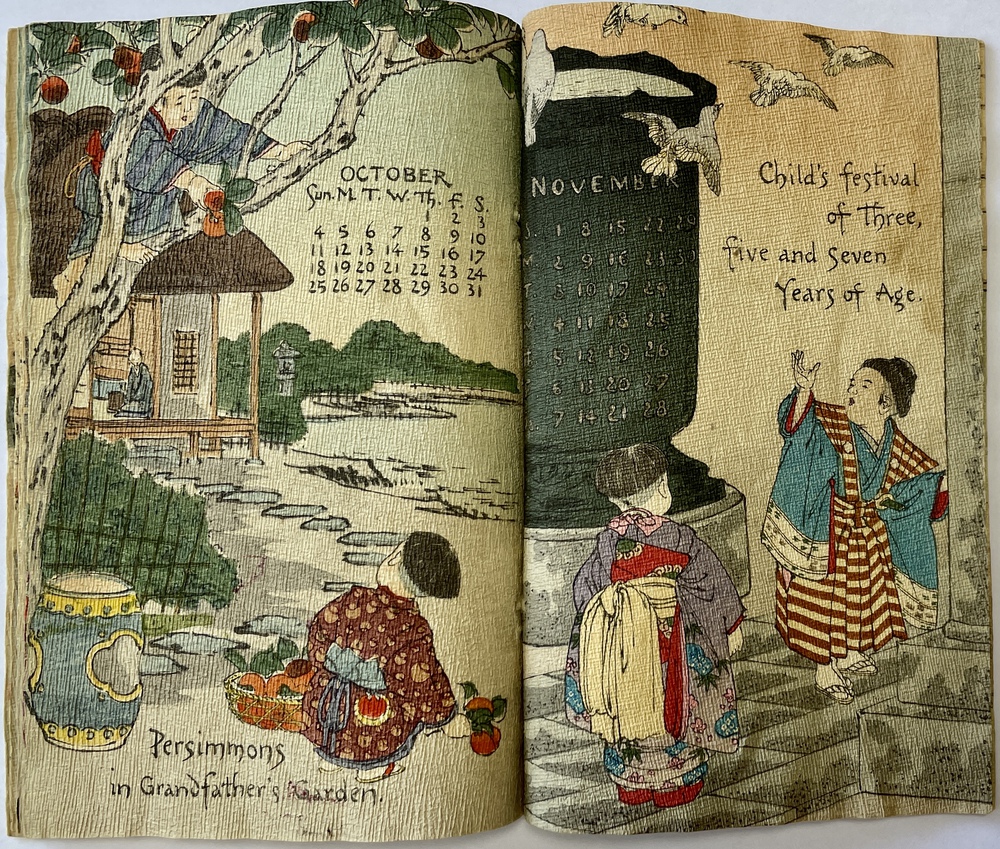 OCTOBER
Sun. M. T. W. Th. f. S.
1 2 3
4 5 6 7 8 9 10
11 12 13 14 15 16 17
18 19 20 21 22 23 24
25 26 27 28 29 30 31
Persimmons
in Grandfather's Garden.
NOVEMBER
S. 1 8 15 22 29
9 16 23 30
10 17 24
4 11 18 25
5 12 19 26
6 13 20 27
7 14 21 28
Child's festival
of Three,
five and Seven
Years of Age.